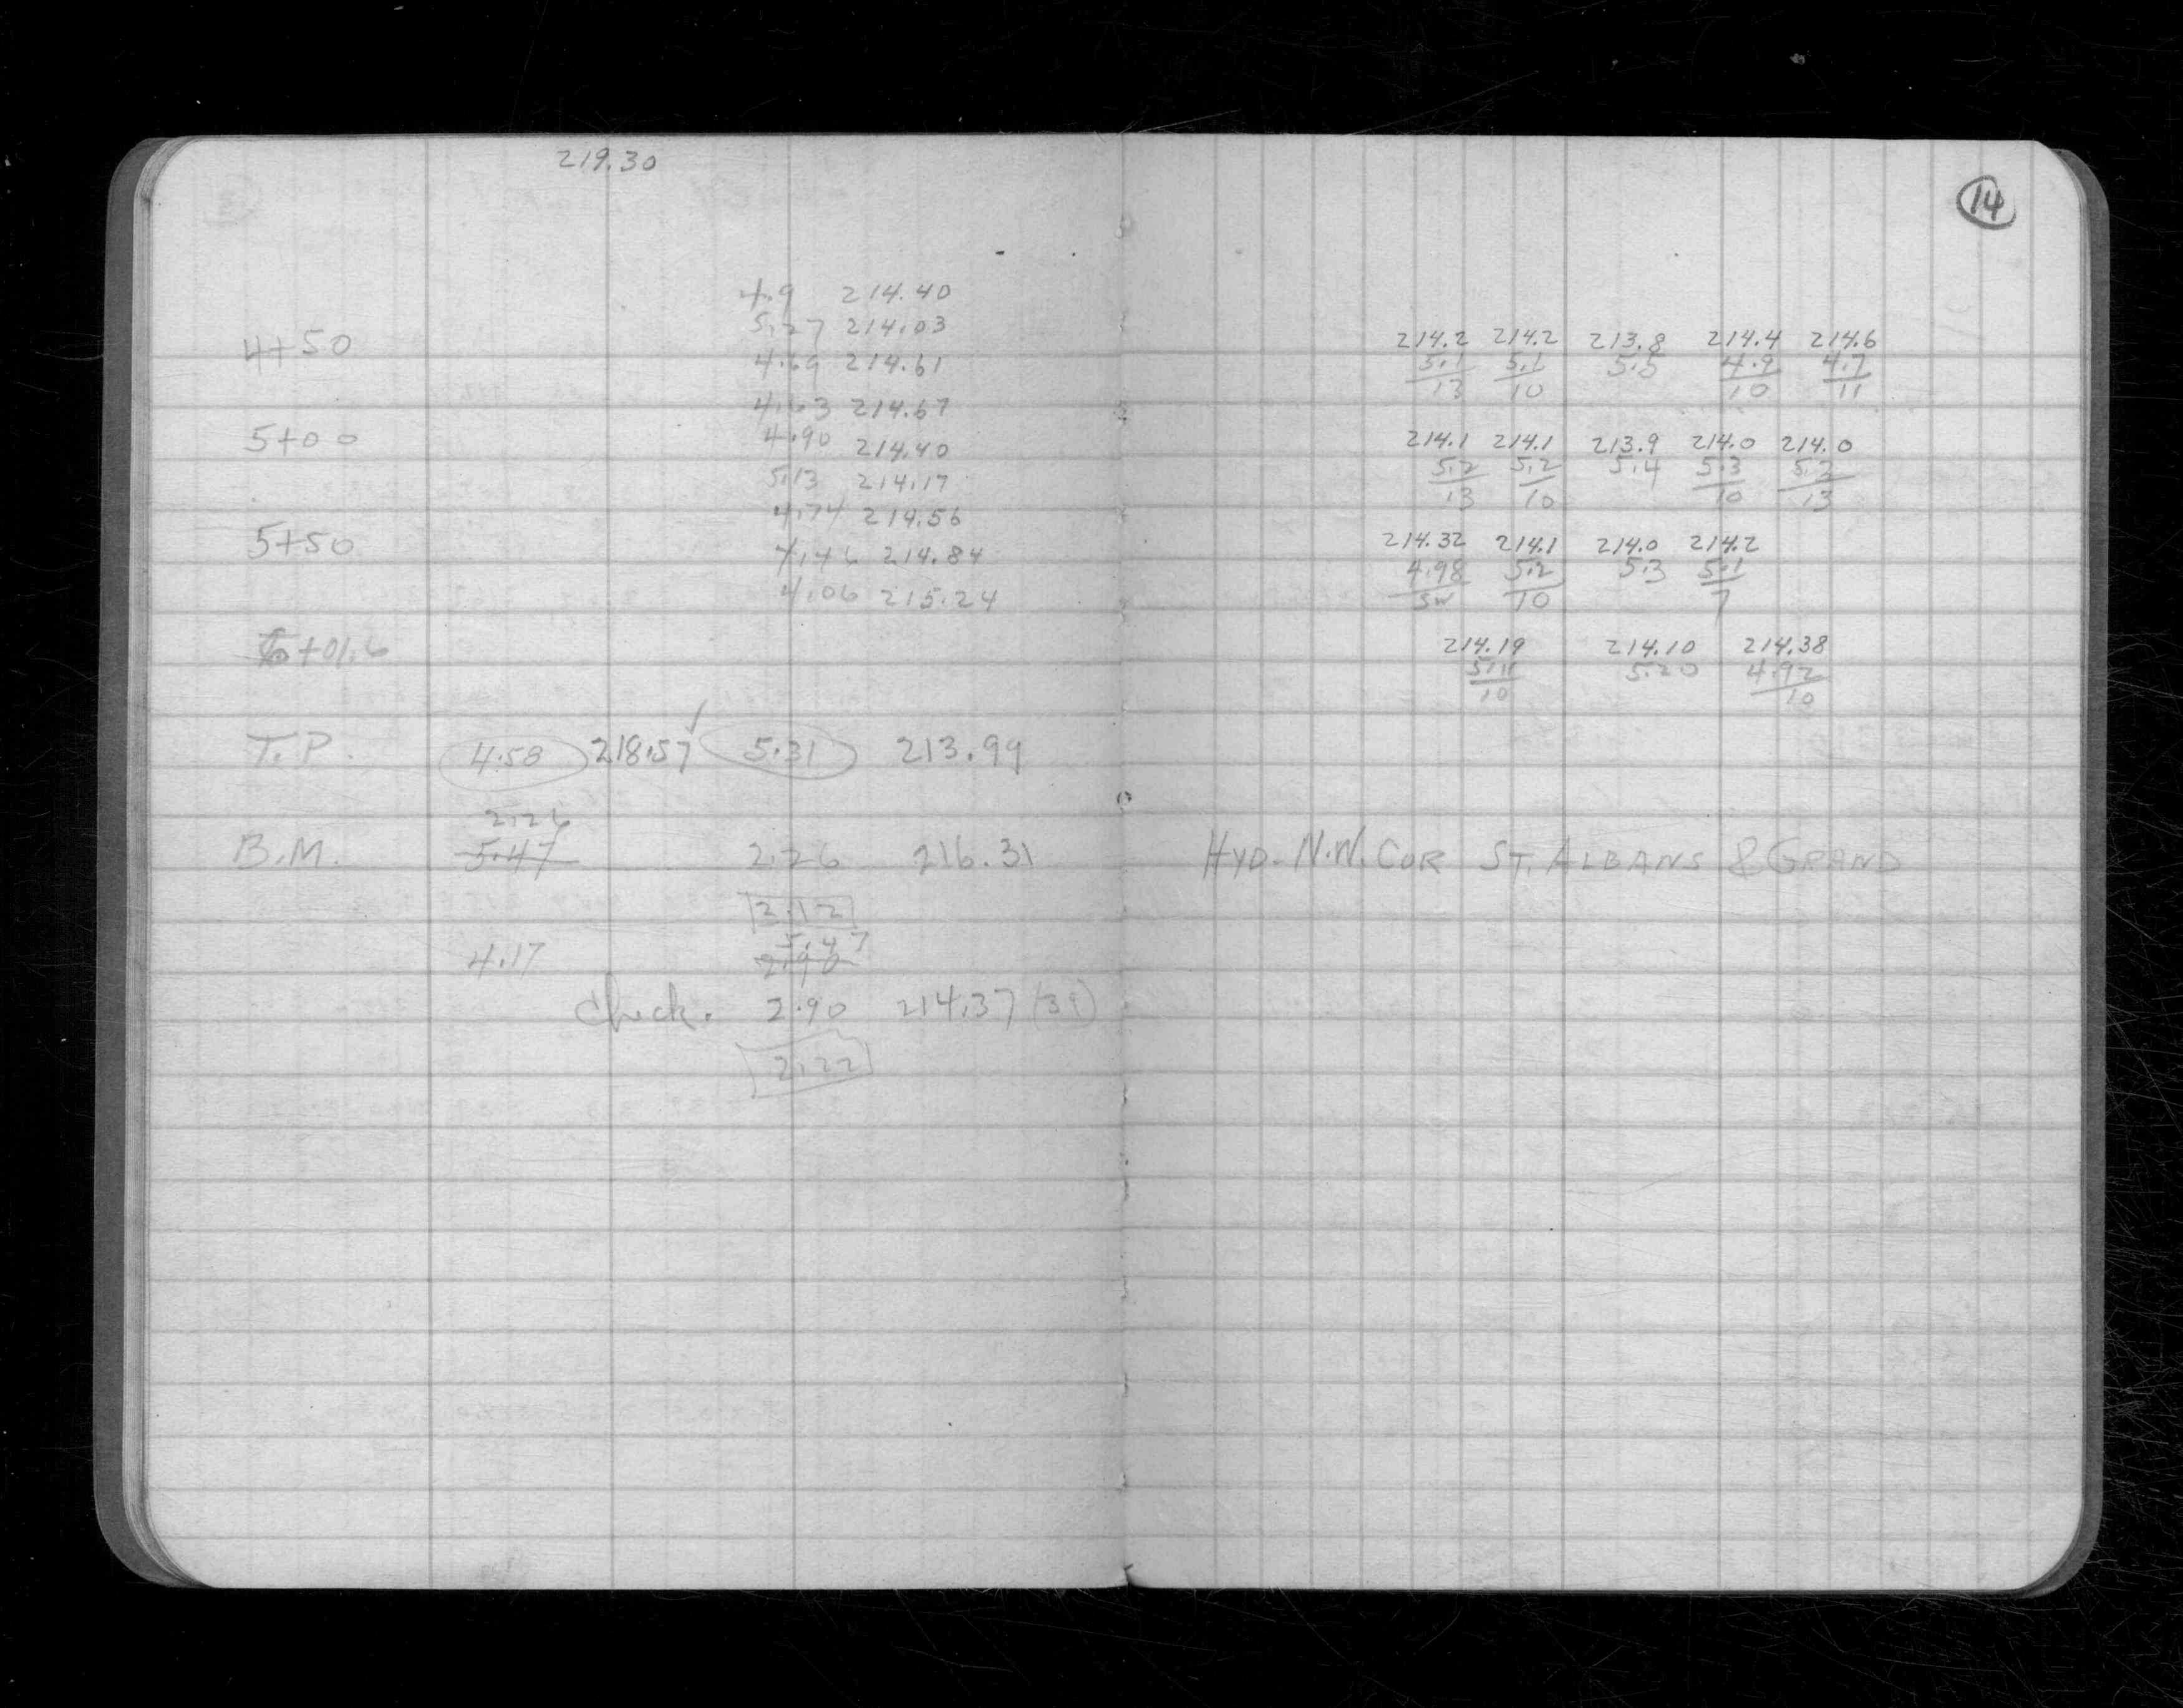 219.30
14
4.9 214.40
5.27 214.03
4+50
4.69 214.61
4.63 214.67
5+00
4.90 214.40
5.13 214.17
4.74 214.56
5+50
4.46 214.84
4.06 215.24
6+01.6
T.P. 4.58 218.57 ✓ 5.31 213.99
2.26
B.M. 5.47 2.26 216.31
2.12
5.47
4.17 2.90
Check. 2.90 214.37 (39)
2.22
214.2 214.2 213.8 214.4 214.6
5.1 5.1 5.5 4.9 4.7
13 10 10 11
214.1 214.1 213.9 214.0 214.0
5.2 5.2 5.4 5.3 5.3
13 10 10 13
214.32 214.1 214.0 214.2
4.98 5.2 5.3 5.1
SW 10 7
214.19 214.10 214.38
5.11 5.20 4.92
10 10
HYD. N.W. COR ST. ALBANS & GRAND